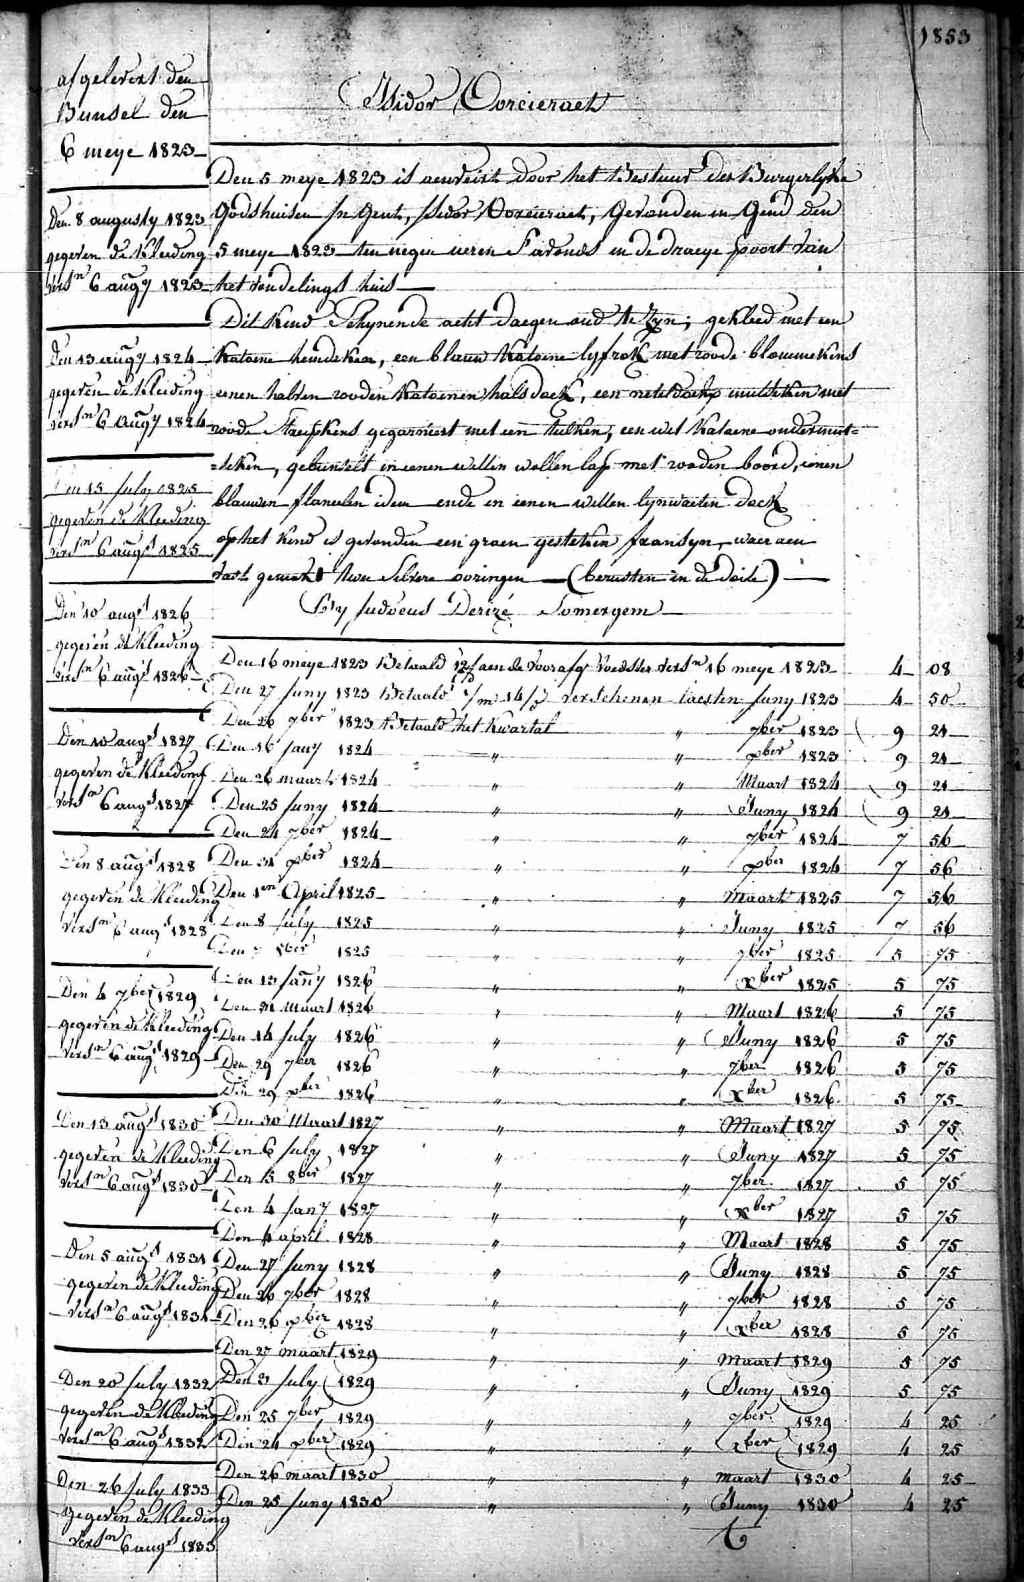 1853
afgelevert den
Bunsel den
6 meye 1823
Den 8 augusty 1823
gegeven de kleeding
versn 6 augy 1823
Den 13 augy 1824
gegeven de kleeding
versn 6 augy 1824
Den 15 july 1825
gegeven de kleeding
versn 6 augt 1825
Den 10 augt 1826
gegeven de kleeding
versn 6 augt 1826
Den 10 augt 1827
gegeven de kleeding
versn 6 augt 1827
Den 8 augt 1828
gegeven de kleeding
versn 6 augt 1828
Den 4 7ber 1829
gegeven de kleeding
versn 6 augt 1829
Den 13 augt 1830
gegeven de kleeding
versn 6 augt 1830
Den 5 augt 1831
gegeven de kleeding
versn 6 augt 1831
Den 20 july 1832
gegeven de kleeding
versn 6 augt 1832
Den 26 july 1833
gegeven de kleeding
versn 6 augt 1833
Isidor
Den 5 meye 1823 is aenveirt door het Bestuur der Burgerlyke
Godshuisen in Gent, Isidor gevonden in Gend den
5 meye 1823 ten negen ueren s'avonds in de draeye poort van
het vondelings huis
Dit kind schynende acht daegen oud te zyn; gekleed met een
katoene hemdeken, een blauw katoene lyfrok met roode blommekens
eenen halven rooden katoenen halsdoek, een neteldoeks mutsken met
roode streepkens gegarniert met een tulken, een wit katoene ondermut=
=seken, gebunselt in eenen witten wollen lap met rooden boord, eenen
blauwen flanelen idem ende in eenen witten lynwaeten doek
op het kind is gevonden een groen gesteken fransyn, waer aen
vast gemaekt twee silvere ooringen (berusten in de doose)
by Judocus Somergem
Den 16 meye 1823 Betaald aen de voorafg voedster versn 16 meye 1823 4 08
Den 27 juny 1823 Betaald verschenen laesten juny 1823 4 50
Den 26 7ber 1823 Betaald het kwartal " 7ber 1823 9 21
Den 16 jany 1824 " " xber 1823 9 21
Den 26 maart 1824 " " Maart 1824 9 21
Den 25 juny 1824 " " Juny 1824 9 21
Den 24 7ber 1824 " " 7ber 1824 7 56
Den 31 xber 1824 " " xber 1824 7 56
Den 1en April 1825 " " Maart 1825 7 56
Den 8 july 1825 " " Juny 1825 7 56
Den 8ber 1825 " " 7ber 1825 5 75
Den 13 jany 1826 " " xber 1825 5 75
Den 31 maart 1826 " " Maart 1826 5 75
Den 14 july 1826 " " Juny 1826 5 75
Den 29 7ber 1826 " " 7ber 1826 5 75
Den 29 xber 1826 " " xber 1826 5 75
Den 30 Maart 1827 " " Maart 1827 5 75
Den 6 july 1827 " " Juny 1827 5 75
Den 15 8ber 1827 " " 7ber 1827 5 75
Den 4 jany 1827 " " xber 1827 5 75
Den 4 april 1828 " " Maart 1828 5 75
Den 27 juny 1828 " " Juny 1828 5 75
Den 26 7ber 1828 " " 7ber 1828 5 75
Den 26 xber 1828 " " xber 1828 5 75
Den 27 maart 1829 " " Maart 1829 5 75
Den 3 july 1829 " " Juny 1829 5 75
Den 25 7ber 1829 " " 7ber 1829 4 25
Den 24 xber 1829 " " xber 1829 4 25
Den 26 maart 1830 " " maart 1830 4 25
Den 25 juny 1830 " " Juny 1830 4 25